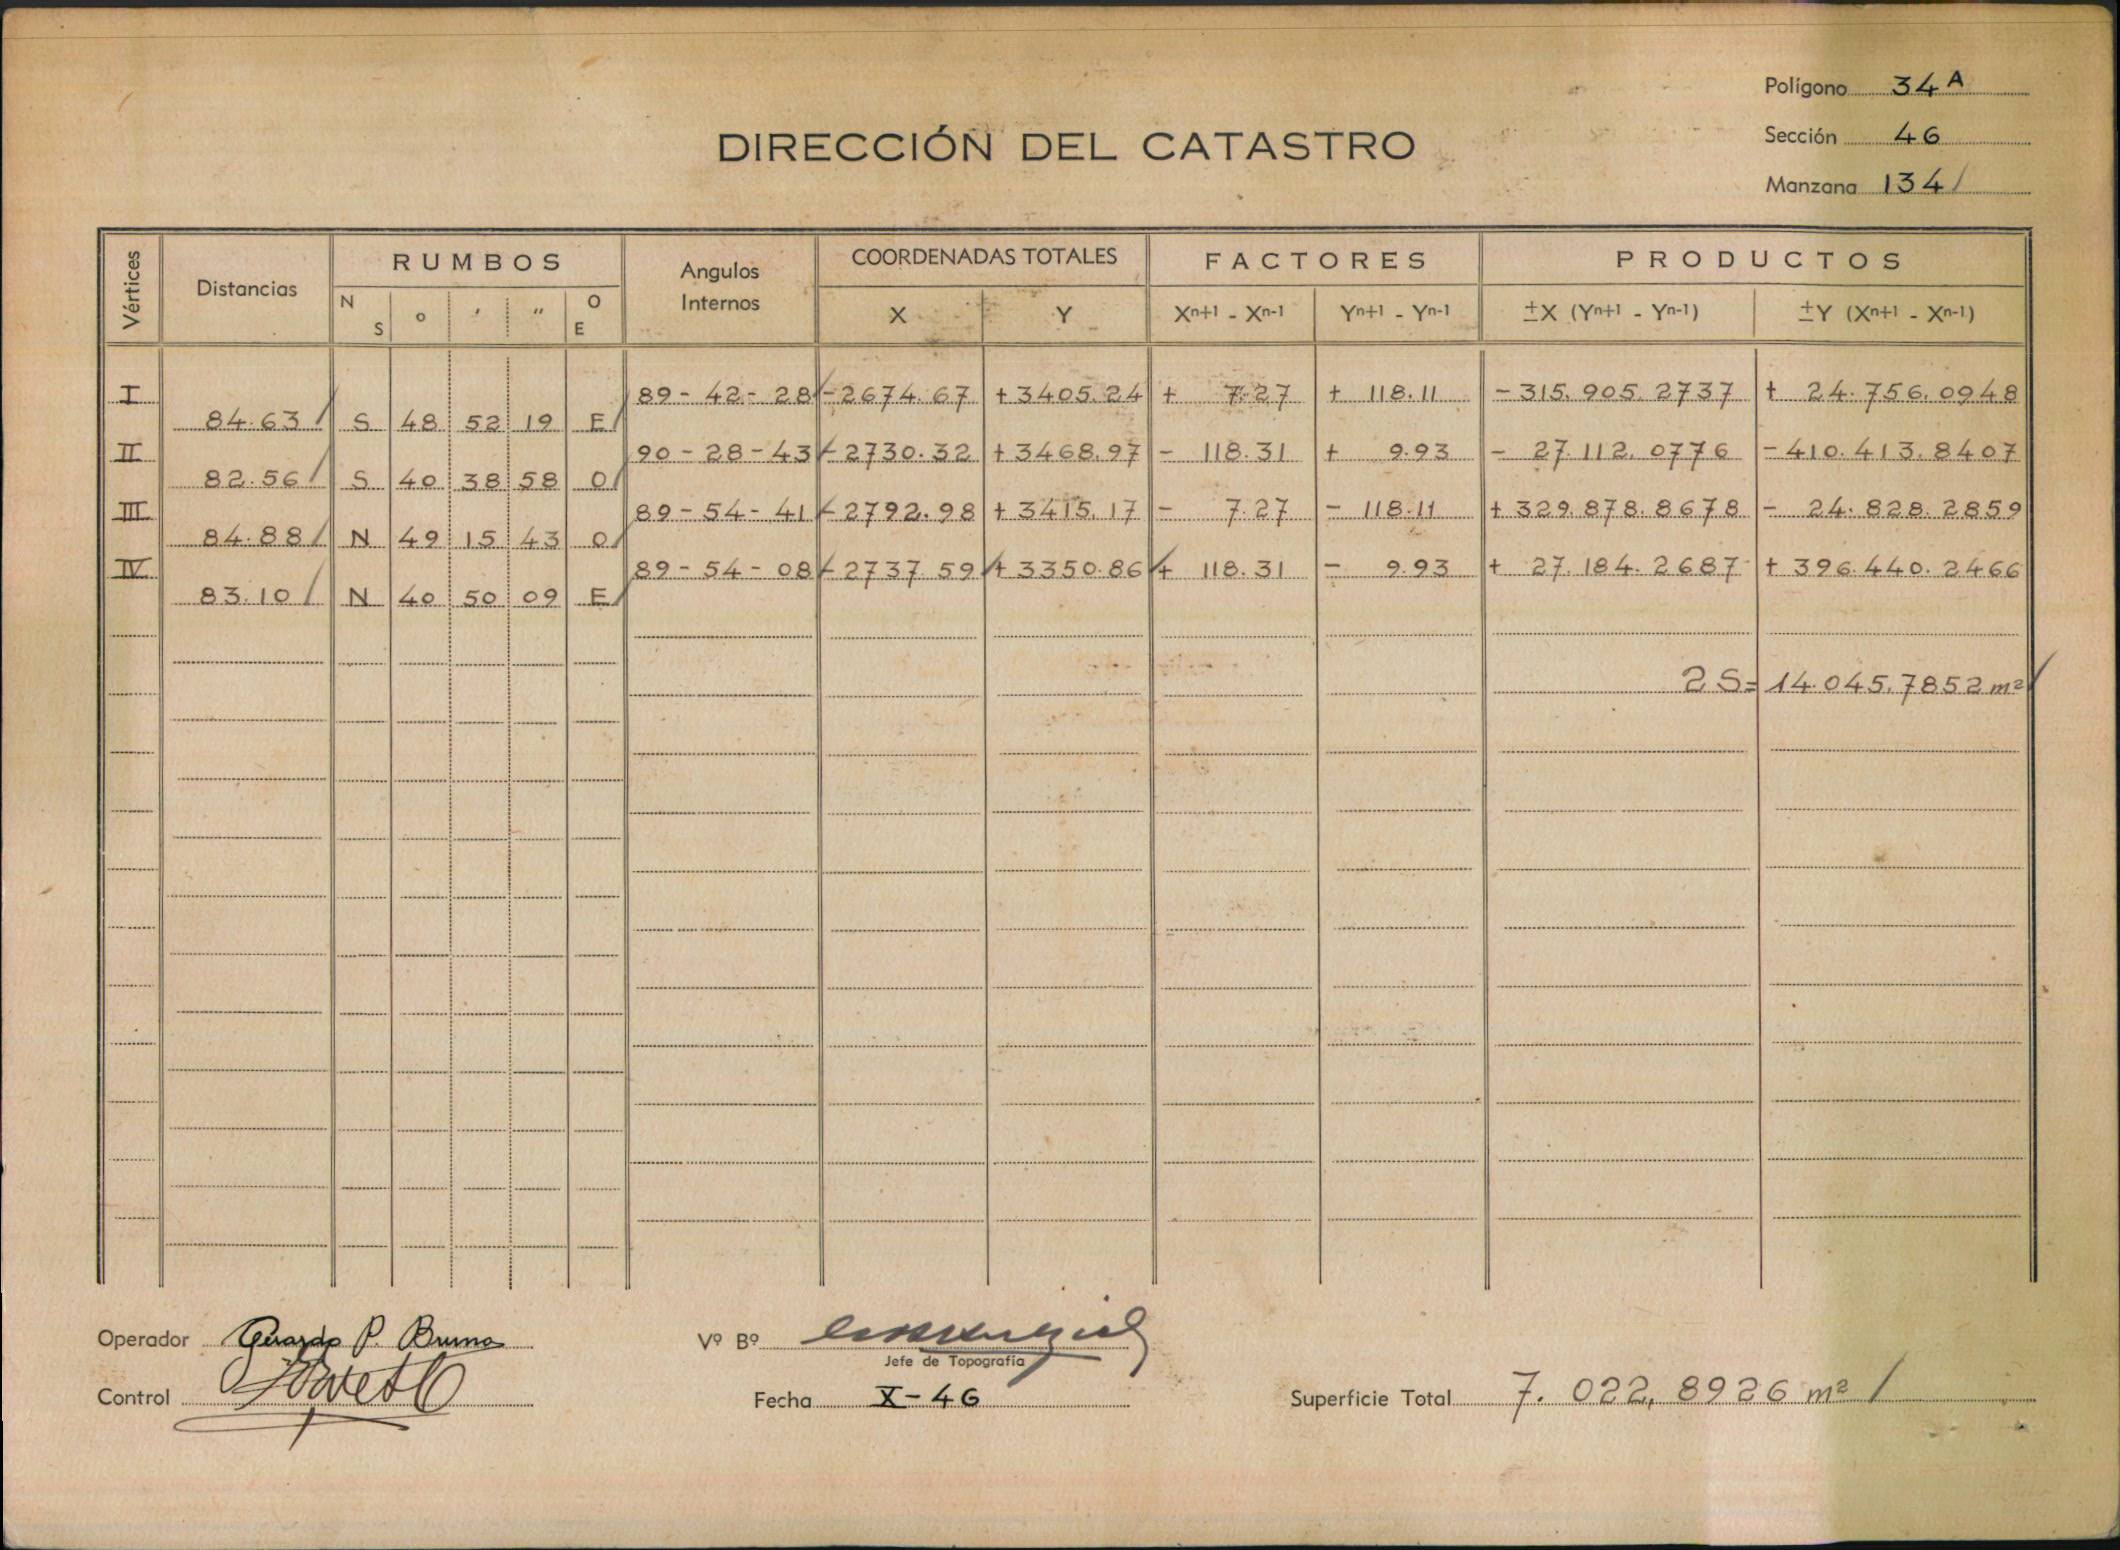 Polígono 34 A
Sección 46
Manzana 134
DIRECCIÓN DEL CATASTRO
Vértices Distancias RUMBOS Angulos Internos COORDENADAS TOTALES FACTORES PRODUCTOS
N S ° ' " O E X Y Xn+1 - Xn-1 Yn+1 - Yn-1 ±X (Yn+1 - Yn-1) ±Y (Xn+1 - Xn-1)
I 89-42-28 -2674.67 +3405.24 + 7.27 + 118.11 -315.905.2737 + 24.756.0948
84.63 S 48 52 19 E
II 90-28-43 -2730.32 +3468.97 - 118.31 + 9.93 - 27.112.0776 -410.413.8407
82.56 S 40 38 58 O
III 89-54-41 -2792.98 +3415.17 - 7.27 - 118.11 +329.878.8678 - 24.828.2859
84.88 N 49 15 43 O
IV 89-54-08 -2737.59 +3350.86 + 118.31 - 9.93 + 27.184.2687 +396.440.2466
83.10 N 40 50 09 E
2 S= 14.045.7852 m²
Operador Gerardo P. Bruno
Vº Bº
Jefe de Topografía
Control
Fecha X-46
Superficie Total 7.022,8926 m²